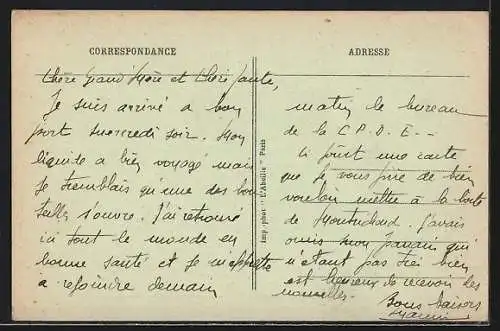 CORRESPONDANCE
ADRESSE
Chère Grand'Mère et Chère Tante,
Je suis arrivé à bon
port mercredi soir. Mon
liquide a bien voyagé mais
Je tremblais qu'une des bou
teilles s'ouvre. J'ai retrouvé
ici tout le monde en
bonne santé et je m'apprête
a rejoindre demain
Imp. phot. "L'Abeille" Paris
matin le bureau
de la C.P.D.E--
Ci joint une carte
que je vous prie de bien
vouloir mettre à la boite
de Montrichard. J'avais
omis mon parrain qui
n'etant pas très bien
est heureux de recevoir des
nouvelles.
Bons baisers